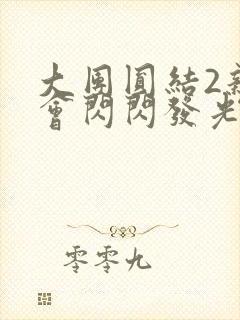 大團圓結2新
會閃閃發光
零零九